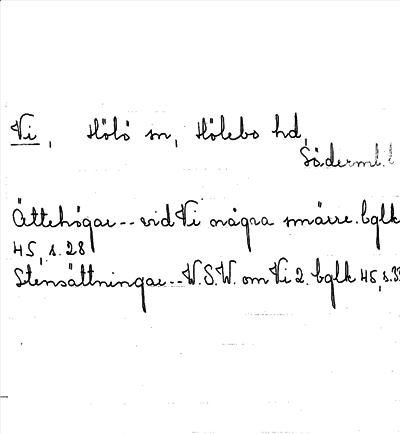 Vi, Hölö sn, Hölebo hd,
Söderml. l
Ättehögar -- vid Vi några smärre. bglk
45, s. 28
Stensättningar -- V.S.V. om Vi 2. bglk 45, s. 33